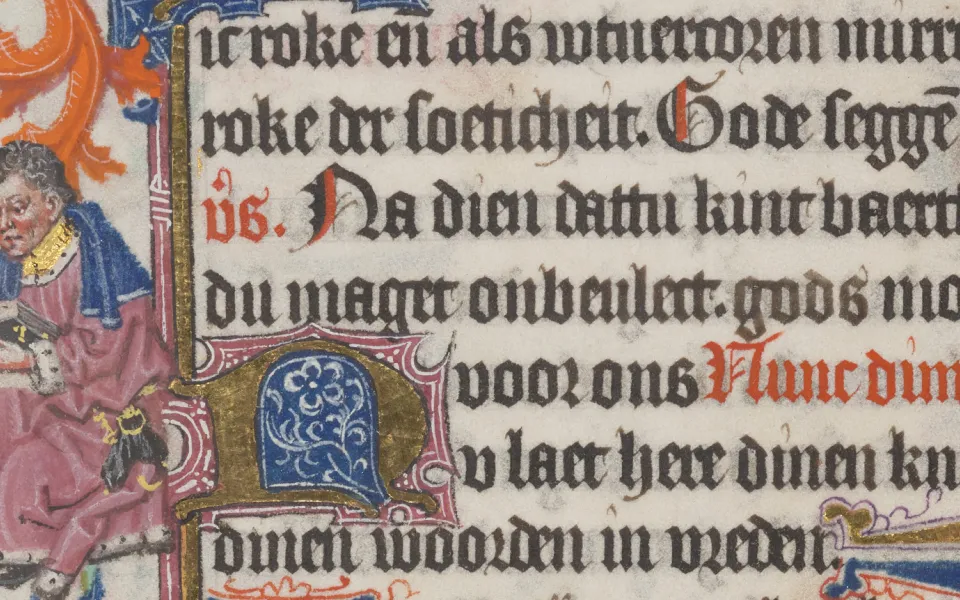 ic roke en̄ als wtuercoren mirr
roke der soeticheit. Gode seggē
v̊s. Na dien dattu kint baert
du maget onbeulect. gods mo
voor ons Nunc dim
Nv laet here dinen kn
dinen woorden in vreden.